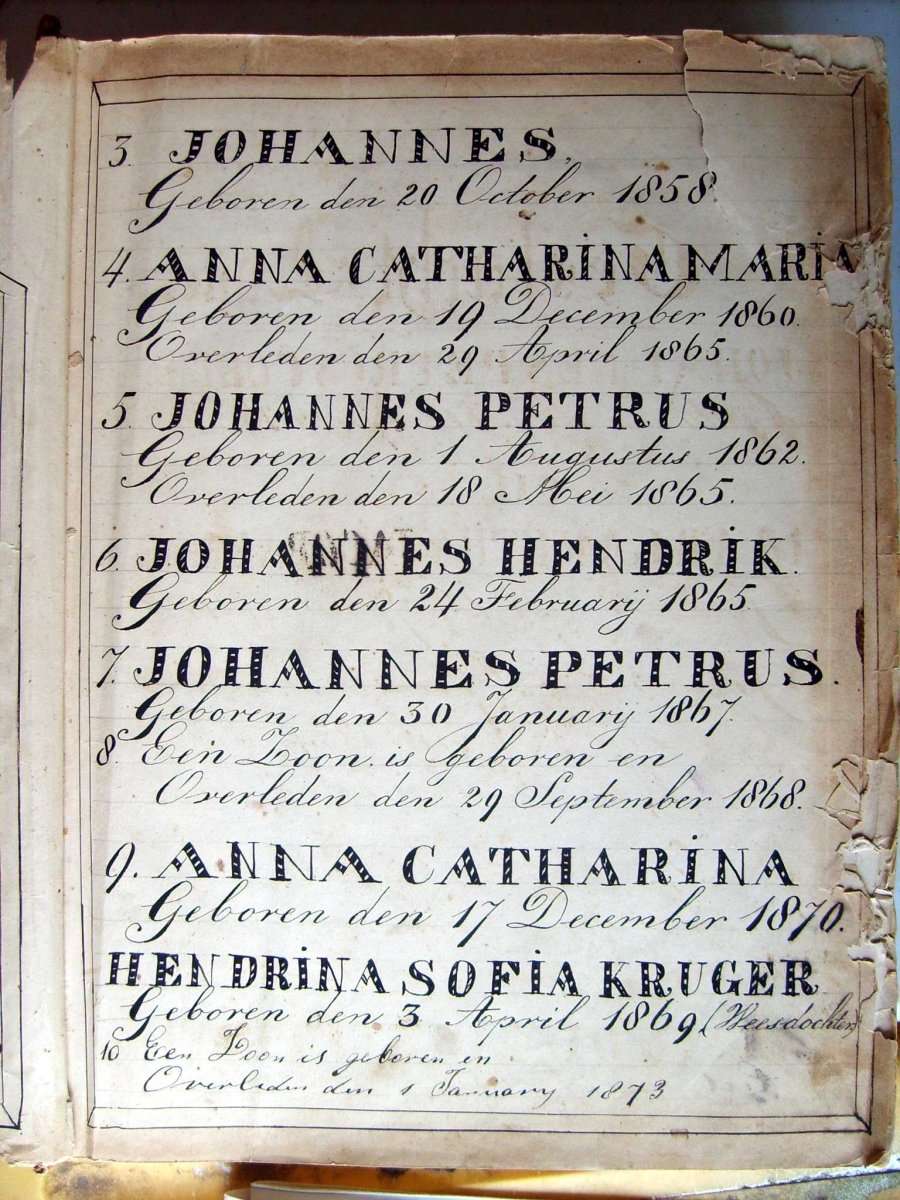 3. JOHANNES,
Geboren den 20 October 1858.
4. ANNA CATHARINA MARIA
Geboren den 19 December 1860.
Overleden den 29 April 1865.
5. JOHANNES PETRUS
Geboren den 1 Augustus 1862.
Overleden den 18 Mei 1865.
6. JOHANNES HENDRIK.
Geboren den 24 Februarij 1865
7. JOHANNES PETRUS.
Geboren den 30 Januarij 1867.
8. Een Zoon is geboren en
Overleden den 29 September 1868.
9. ANNA CATHARINA
Geboren den 17 December 1870.
HENDRINA SOFIA KRUGER.
Geboren den 3 April 1869 (Weesdochter)
10 Een Zoon is geboren en
Overleden den 1 January 1873